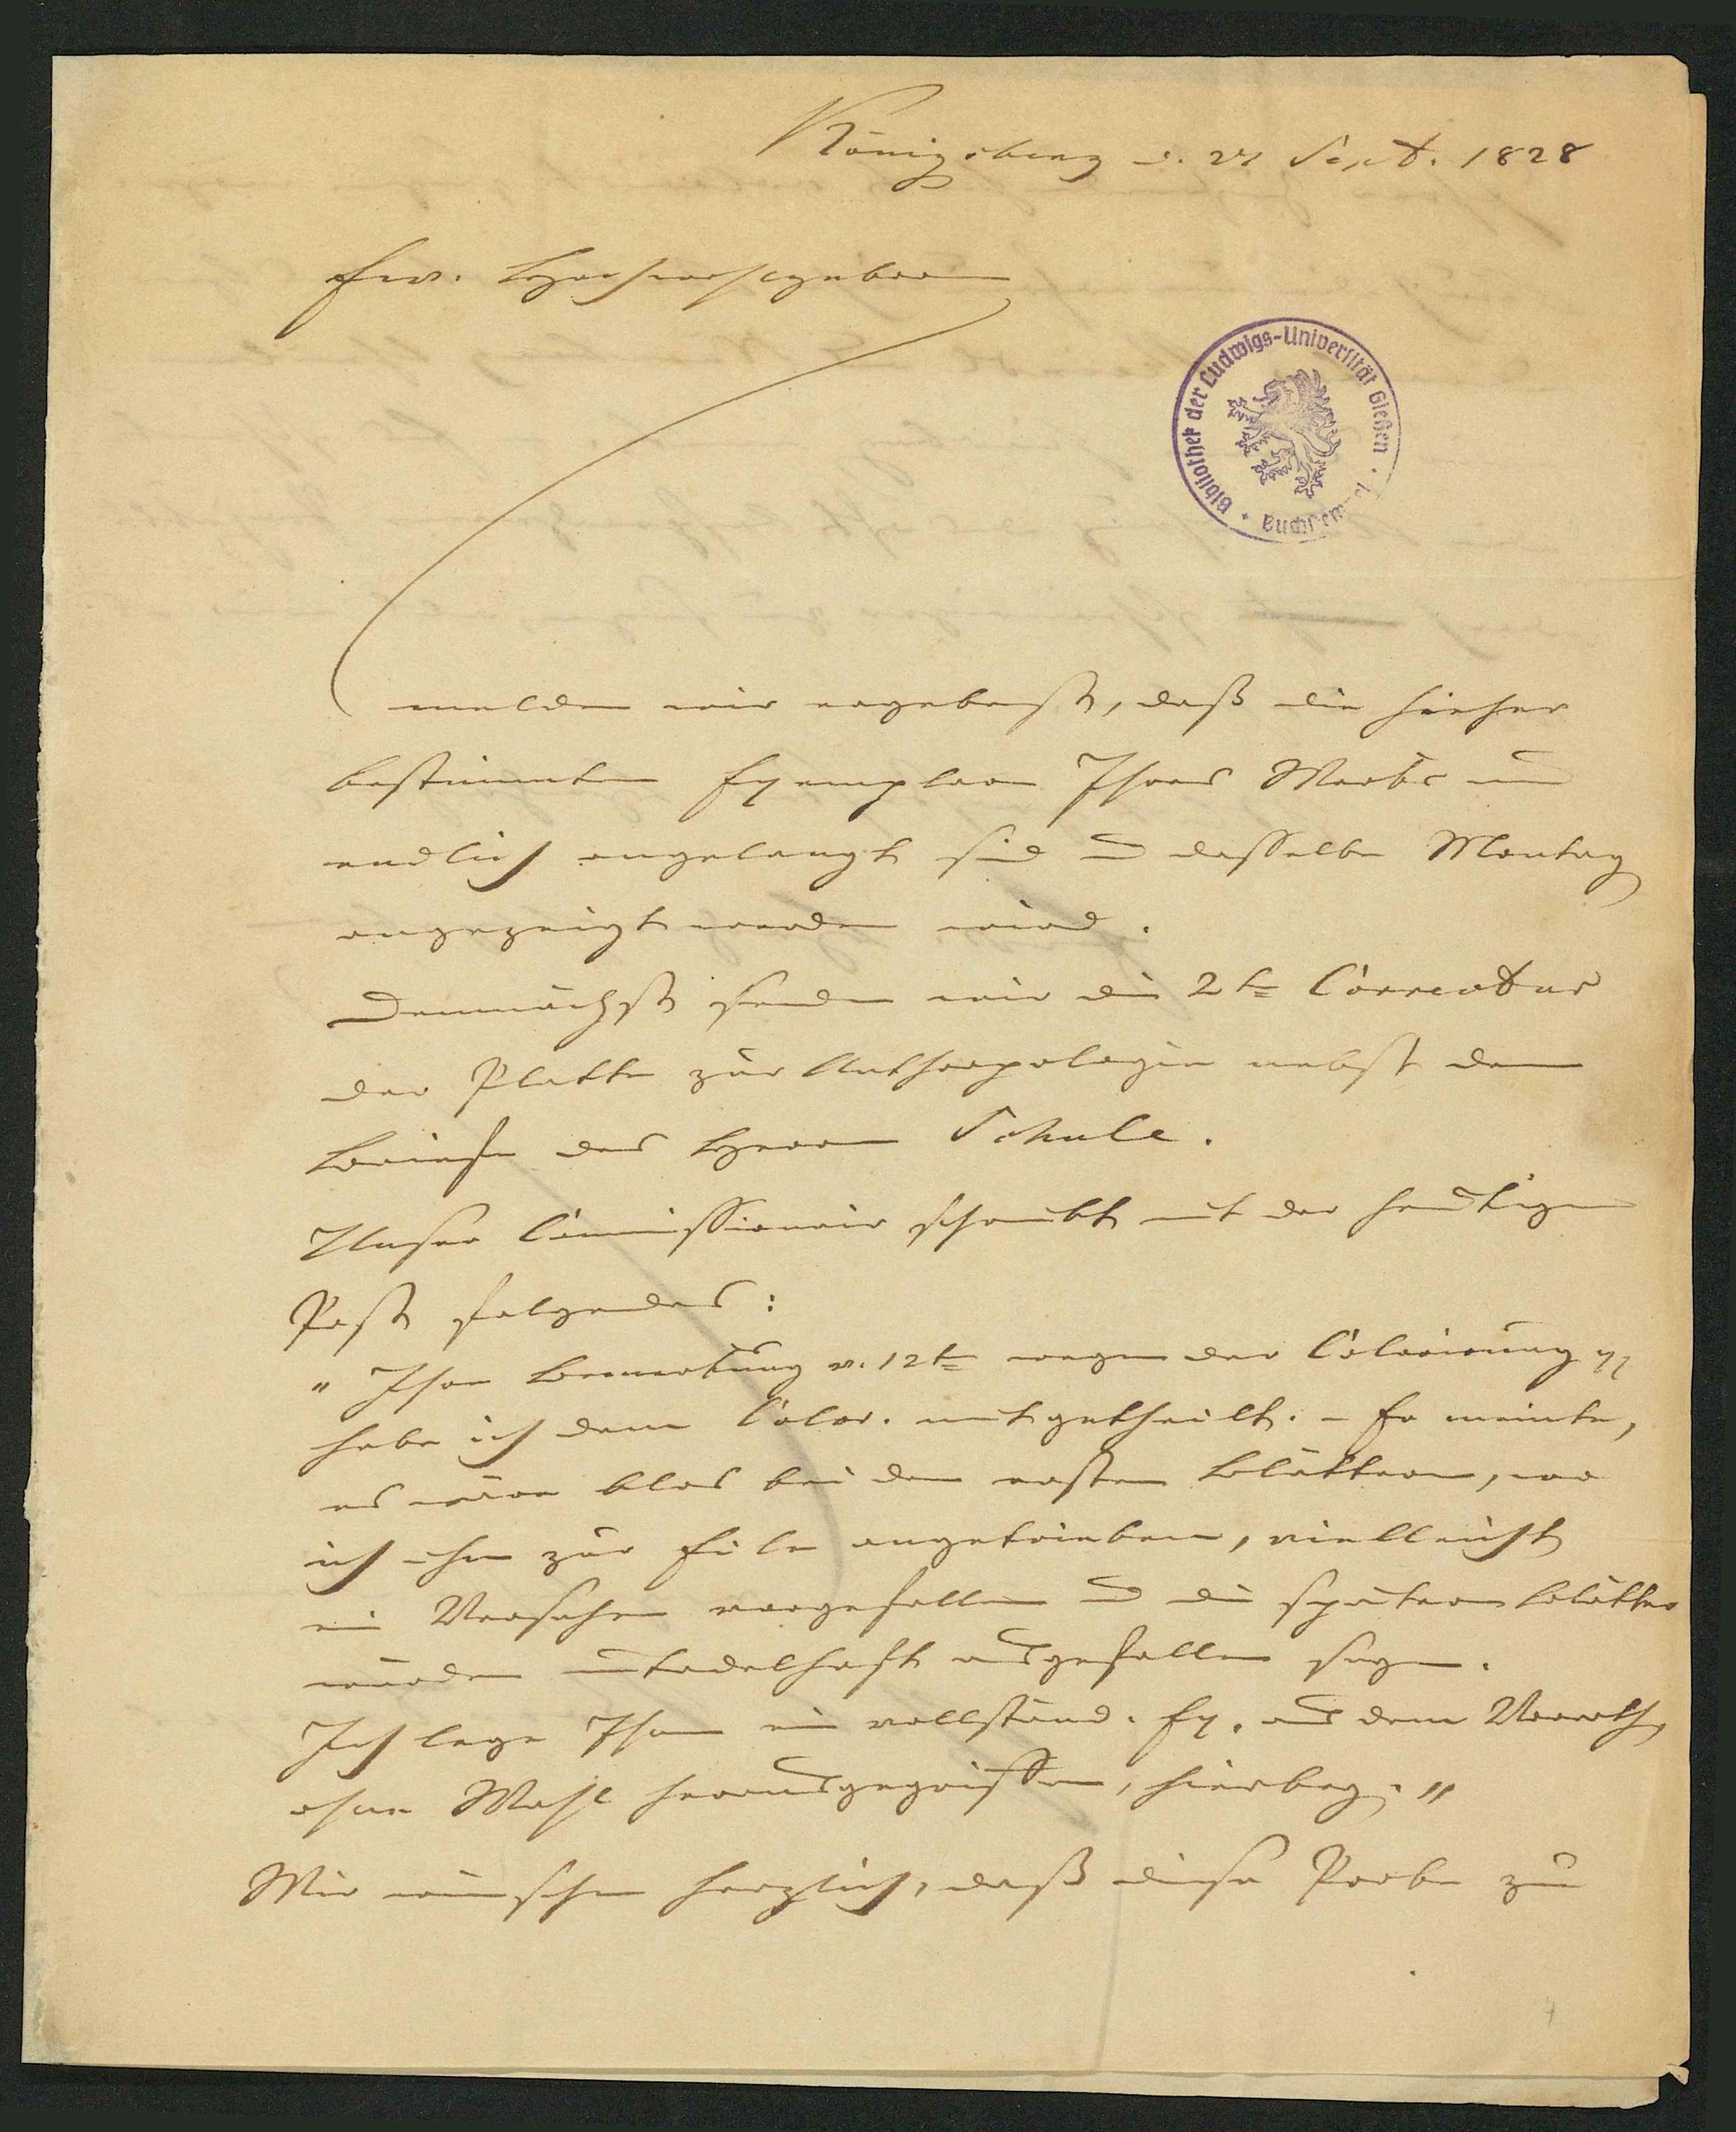 Königsberg d. 27 Sept. 1828
Ew. Hochwohlgeboren
Bibliothek der Ludwigs-Universität Gießen
melden wir ergebenst, daß die hieher
bestimmten Exemplare Ihres Werks nun
endlich angelangt sind und dasselbe Montag
angezeigt werden wird.
Demnächst senden wir die 2te Correctur
der Platte zur Anthropologie nebst dem
Briefe des Herrn Schule.
Unser Commissionair schreibt mit der heutigen
Post folgendes:
"Ihre Bemerkung v. 12t wegen der Colorirung
habe ich dem Color. mitgetheilt. – Er meinte,
es wäre blos bei den ersten Blättern, wo
ich ihn zur Eile angetrieben, vielleicht
ein Versehen vorgefallen und die spätern Blätter
würden untadelhaft ausgefallen seyn.
Ich lege Ihnen ein vollständ. Ex. aus dem Vorrath,
ohne Wahl herausgegriffen, hierbey."
Wir wünschen herzlich, daß diese Probe zu
4